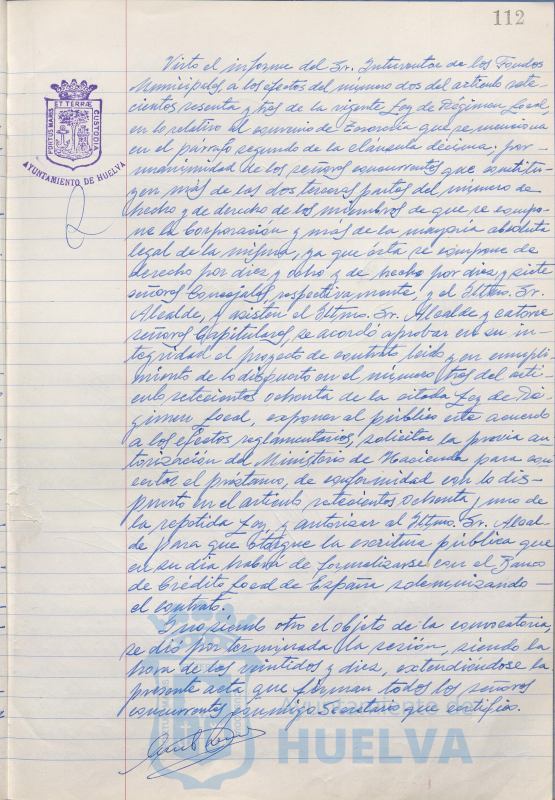 112
Visto el informe del Sr. Interventor de los Fondos
Municipales, a los efectos del número dos del artículo sete-
cientos sesenta y tres de la vigente Ley de Régimen Local,
en lo relativo al convenio de Tesorería que se menciona
en el párrafo segundo de la cláusula décima; por
unanimidad de los señores concurrentes que constitu-
yen más de las dos terceras partes del número de
hecho y de derecho de los miembros de que se compo-
ne la Corporación y más de la mayoría absoluta
legal de la misma, ya que ésta se compone de
derecho por diez y ocho y de hecho por diez y siete
señores Concejales, respectivamente, y el Iltmo. Sr.
Alcalde, y asisten el Iltmo. Sr. Alcalde y catorce
señores Capitulares, se acordó aprobar en su in-
tegridad el proyecto de contrato leído y en cumpli-
miento de lo dispuesto en el número tres del artí-
culo setecientos ochenta de la citada Ley de Ré-
gimen Local, exponer al público este acuerdo
a los efectos reglamentarios, solicitar la previa au-
torización del Ministerio de Hacienda para con-
certar el préstamo, de conformidad con lo dis-
puesto en el artículo setecientos ochenta y uno de
la repetida Ley, y autorizar al Iltmo. Sr. Alcal-
de para que otorgue la escritura pública que
en su día habrá de formalizarse con el Banco
de Crédito Local de España solemnizando
el contrato.
Y no siendo otro el objeto de la convocatoria,
se dió por terminada la sesión, siendo la
hora de las veintidos y diez, extendiéndose la
presente acta que firman todos los señores
concurrentes conmigo Secretario que certifico.
PORTUS MARIS
ET TERRÆ
CUSTODIA
AYUNTAMIENTO DE HUELVA
HUELVA